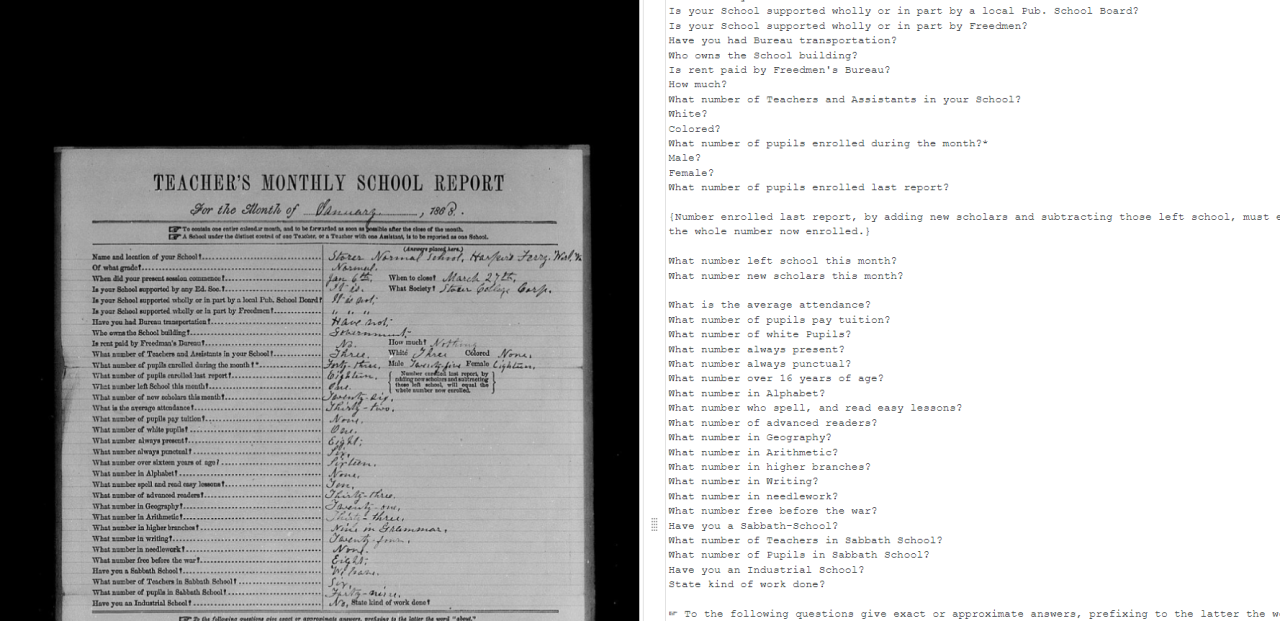 TEACHER'S MONTHLY SCHOOL REPORT
For the Month of January, 1868.
☞ To contain one entire calendar month, and to be forwarded as soon as possible after the close of the month.
☞ A School under the distinct control of one Teacher, or a Teacher with one Assistant, is to be reported as one School.
(Answers placed here.)
Name and location of your School? Storer Normal School, Harper's Ferry. West Va
Of what grade? Normal.
When did your present session commence? Jan 6th. When to close? March 27th.
Is your School supported by any Ed. Soc.? It is. What Society? Storer College Corp.
Is your School supported wholly or in part by a local Pub. School Board? It is not;
Is your School supported wholly or in part by Freedmen? " " "
Have you had Bureau transportation? Have not;
Who owns the School building? Government.
Is rent paid by Freedmen's Bureau? No. How much? Nothing
What number of Teachers and Assistants in your School? Three. White Three Colored None.
What number of pupils enrolled during the month?* Forty-three. Male Twenty-five Female Eighteen.
What number of pupils enrolled last report? Eighteen.
{Number enrolled last report, by
adding new scholars and subtracting
those left school, will equal the
whole number now enrolled.}
What number left School this month? One.
What number of new scholars this month? Twenty-six.
What is the average attendance? Thirty-two.
What number of pupils pay tuition? None.
What number of white pupils? One.
What number always present? Eight;
What number always punctual? Six.
What number over sixteen years of age? Sixteen.
What number in Alphabet? None.
What number spell and read easy lessons? Ten.
What number of advanced readers? Thirty-three.
What number in Geography? Twenty-one.
What number in Arithmetic? Thirty-three.
What number in higher branches? Nine in Grammar.
What number in writing? Twenty-four.
What number in needlework? None.
What number free before the war? Eight;
Have you a Sabbath School? We have.
What number of Teachers in Sabbath School?
What number of pupils in Sabbath School? Forty-nine.
Have you an Industrial School? No, State kind of work done?
☞ To the following questions give exact or approximate answers, prefixing to the latter the word "about."
Is your School supported wholly or in part by a local Pub. School Board?
Is your School supported wholly or in part by Freedmen?
Have you had Bureau transportation?
Who owns the School building?
Is rent paid by Freedmen's Bureau?
How much?
What number of Teachers and Assistants in your School?
White?
Colored?
What number of pupils enrolled during the month?*
Male?
Female?
What number of pupils enrolled last report?
{Number enrolled last report, by adding new scholars and subtracting those left school, must e
the whole number now enrolled.}
What number left school this month?
What number new scholars this month?
What is the average attendance?
What number of pupils pay tuition?
What number of white Pupils?
What number always present?
What number always punctual?
What number over 16 years of age?
What number in Alphabet?
What number who spell, and read easy lessons?
What number of advanced readers?
What number in Geography?
What number in Arithmetic?
What number in higher branches?
What number in Writing?
What number in needlework?
What number free before the war?
Have you a Sabbath-School?
What number of Teachers in Sabbath School?
What number of Pupils in Sabbath School?
Have you an Industrial School?
State kind of work done?
☞ To the following questions give exact or approximate answers, prefixing to the latter the w